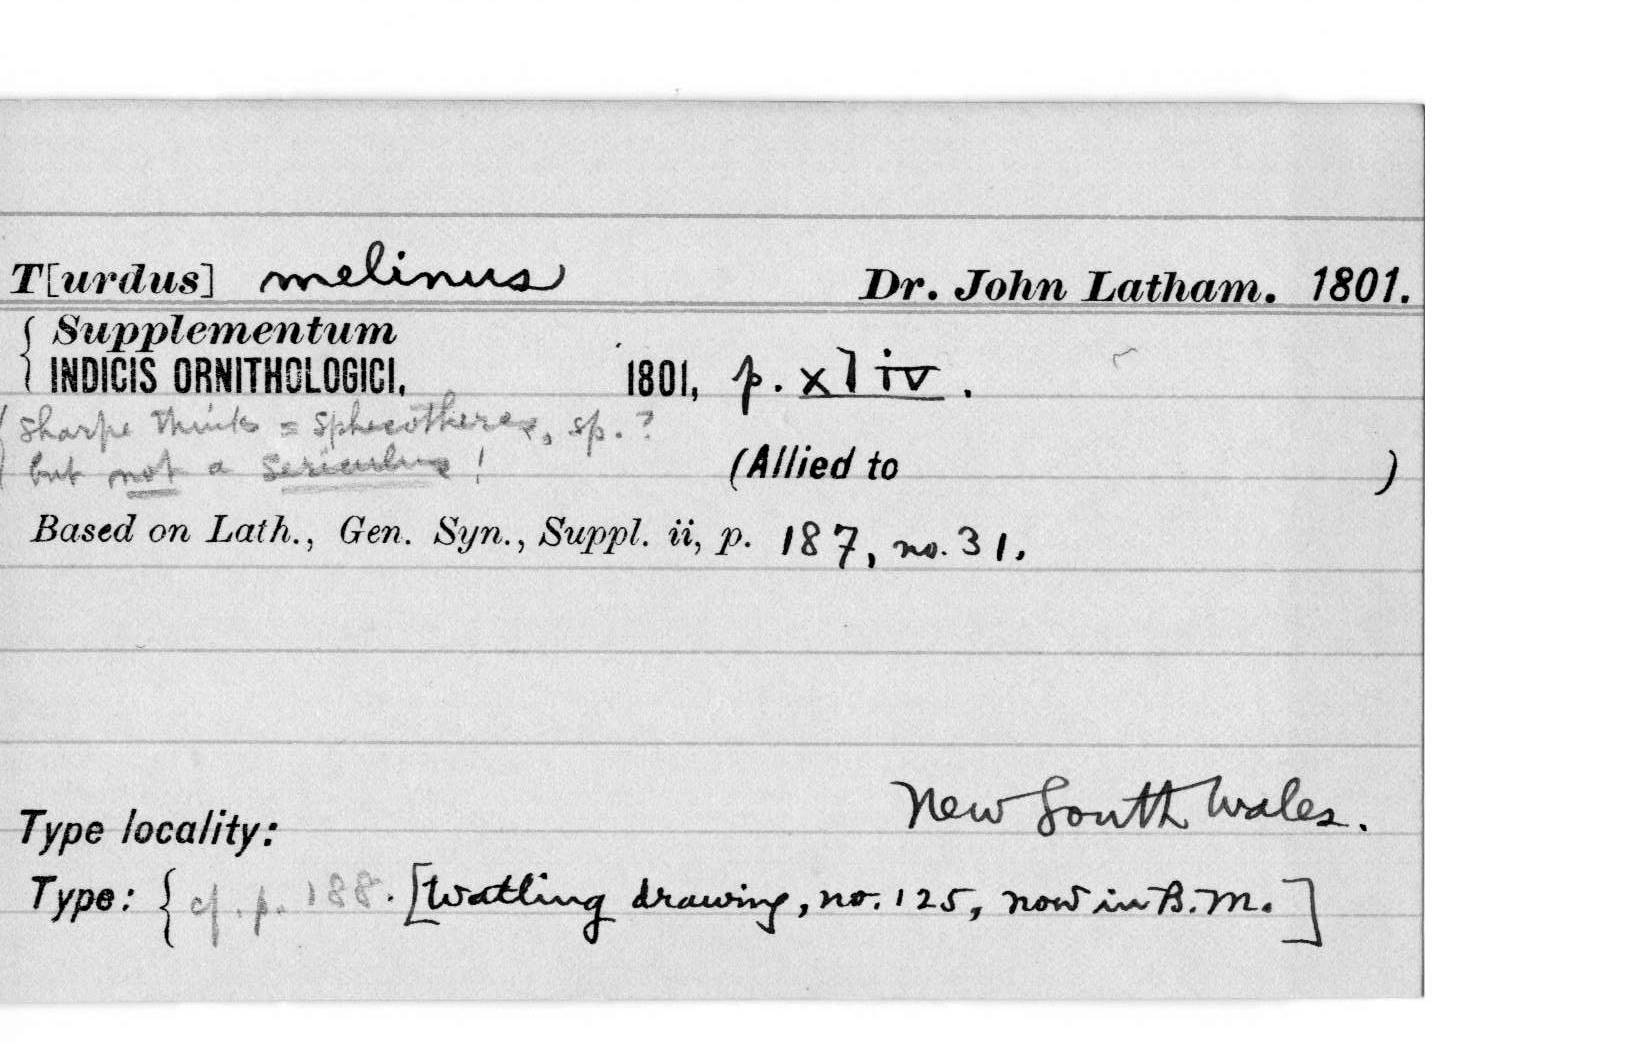 T[urdus] melinus Dr. John Latham. 1801.
{ Supplementum
INDICIS ORNITHOLOGICI, 1801, p. xliv.
( Sharpe thinks = Sphecotheres, sp.?
but not a Sericulus!
(Allied to )
Based on Lath., Gen. Syn., Suppl. ii, p. 187, no. 31.
Type locality: New South Wales.
Type: { cf. p. 188. [Watling drawing, no. 125, now in B.M.]